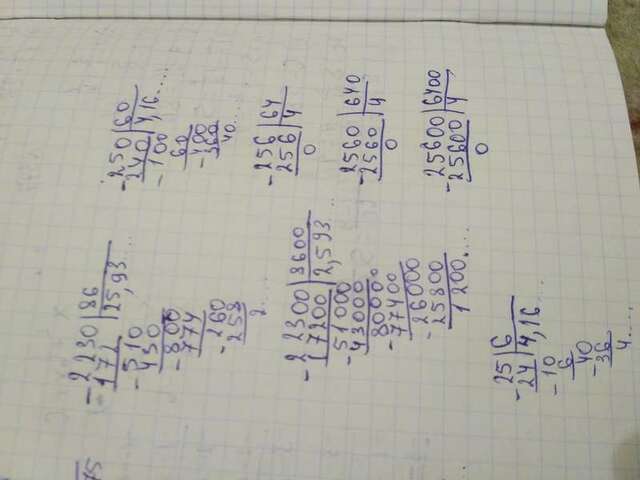 75
- 2230 | 86
172 | 25,93...
- 510
430
- 800
774
- 260
258
2...
- 250 | 60
240 | 4,16....
- 100
60
- 400
360
40...
- 256 | 64
256 | 4
0
- 2560 | 640
2560 | 4
0
- 25600 | 6400
25600 | 4
0
- 22300 | 8600
17200 | 2,593...
- 51000
43000
- 80000
- 77400
- 26000
25800
1200....
- 25 | 6
24 | 4,16...
- 10
6
40
- 36
4....